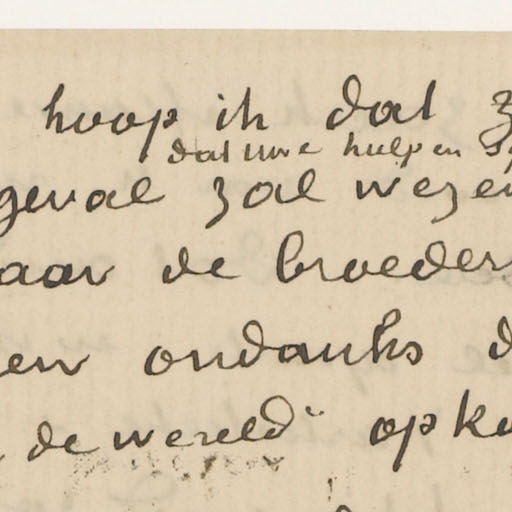 hoop ik dat
dat uwe hulp en
geval zal wezen
aar de broeders
en ondanks d
de wereld opk